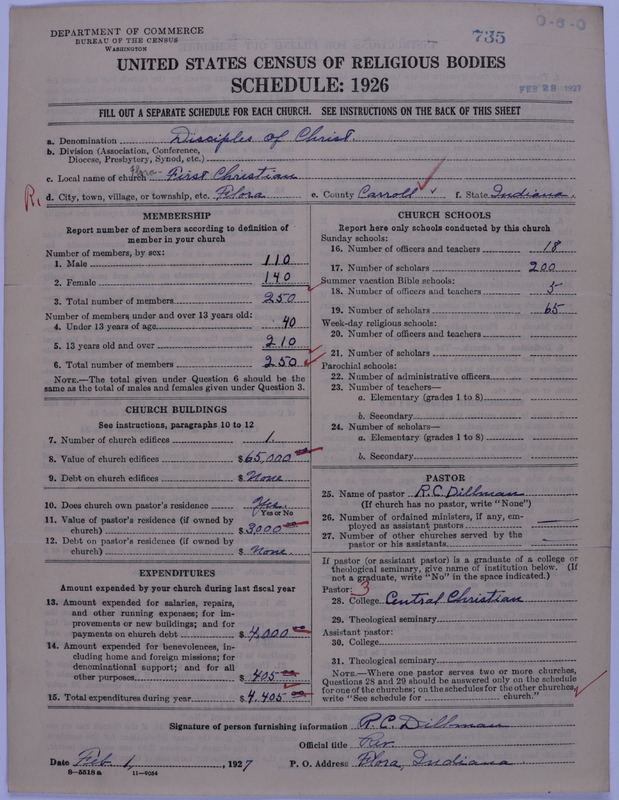 DEPARTMENT OF COMMERCE
BUREAU OF THE CENSUS
WASHINGTON
735
0-6-0
UNITED STATES CENSUS OF RELIGIOUS BODIES
SCHEDULE: 1926
FEB 28 1927
FILL OUT A SEPARATE SCHEDULE FOR EACH CHURCH. SEE INSTRUCTIONS ON THE BACK OF THIS SHEET
a. Denomination Disciples of Christ.
b. Division (Association, Conference,
Diocese, Presbytery, Synod, etc.)
c. Local name of church Flora - First Christian
R. d. City, town, village, or township, etc. Flora e. County Carroll f. State Indiana.
MEMBERSHIP
Report number of members according to definition of
member in your church
Number of members, by sex:
1. Male 110
2. Female 140
3. Total number of members 250
Number of members under and over 13 years old:
4. Under 13 years of age 40
5. 13 years old and over 210
6. Total number of members 250
NOTE.—The total given under Question 6 should be the
same as the total of males and females given under Question 3.
CHURCH BUILDINGS
See instructions, paragraphs 10 to 12
7. Number of church edifices 1.
8. Value of church edifices $65,000 00
9. Debt on church edifices $ None
10. Does church own pastor's residence Yes.
Yes or No
11. Value of pastor's residence (if owned by
church) $3,000 00
12. Debt on pastor's residence (if owned by
church) $ None
EXPENDITURES
Amount expended by your church during last fiscal year
13. Amount expended for salaries, repairs,
and other running expenses; for im-
provements or new buildings; and for
payments on church debt $4,000 00
14. Amount expended for benevolences, in-
cluding home and foreign missions; for
denominational support; and for all
other purposes $ 405 00
15. Total expenditures during year $4,405 00
CHURCH SCHOOLS
Report here only schools conducted by this church
Sunday schools:
16. Number of officers and teachers 18
17. Number of scholars 200
Summer vacation Bible schools:
18. Number of officers and teachers 5
19. Number of scholars 65
Week-day religious schools:
20. Number of officers and teachers
21. Number of scholars
Parochial schools:
22. Number of administrative officers
23. Number of teachers—
a. Elementary (grades 1 to 8)
b. Secondary
24. Number of scholars—
a. Elementary (grades 1 to 8)
b. Secondary
PASTOR
25. Name of pastor R.C. Dillman
(If church has no pastor, write "None")
26. Number of ordained ministers, if any, em-
ployed as assistant pastors
27. Number of other churches served by the
pastor or his assistants
If pastor (or assistant pastor) is a graduate of a college or
theological seminary, give name of institution below. (If
not a graduate, write "No" in the space indicated.)
Pastor: 3
28. College Central Christian
29. Theological seminary
Assistant pastor:
30. College
31. Theological seminary
NOTE.—Where one pastor serves two or more churches,
Questions 28 and 29 should be answered only on the schedule
for one of the churches; on the schedules for the other churches,
write "See schedule for church."
Signature of person furnishing information R.C. Dillman
Official title Rev.
Date Feb 1, 1927 P. O. Address Flora, Indiana
8-5518 a 11-9054